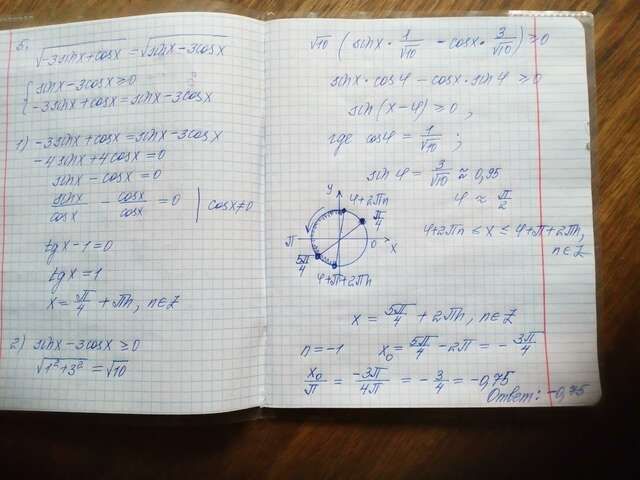 5.
√(-3sinx+cosx) = √(sinx-3cosx)
{ sinx-3cosx≥0
-3sinx+cosx=sinx-3cosx
1) -3sinx+cosx=sinx-3cosx
-4sinx+4cosx=0
sinx-cosx=0
sinx/cosx - cosx/cosx = 0 | cosx≠0
tgx-1=0
tgx=1
x=π/4+πn, n∈Z
2) sinx-3cosx≥0
√(1²+3²)=√10
√10 (sinx·1/√10 -cosx·3/√10)≥0
sinx·cosφ-cosx·sinφ≥0
sin(x-φ)≥0,
где cosφ=1/√10;
sinφ=3/√10≈0,95
φ≈π/2
y
φ+2πn
π/4
π
0
x
5π/4
φ+π+2πn
φ+2πn≤x≤φ+π+2πn,
n∈Z
x=5π/4+2πn, n∈Z
n=-1 x₀=5π/4-2π=-3π/4
x₀/π=-3π/4π=-3/4=-0,75
Ответ: -0,75